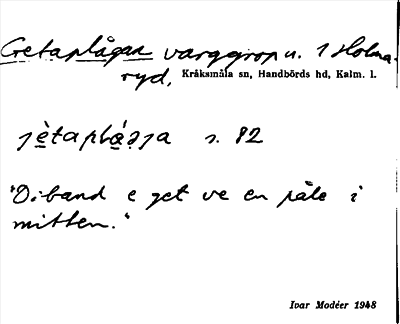 Getaplågan varggrop n. 1 Holma-
ryd, Kråksmåla sn, Handbörds hd, Kalm. l.
s. 82
"Oiband e get ve en påle i
mitten."
Ivar Modéer 1948